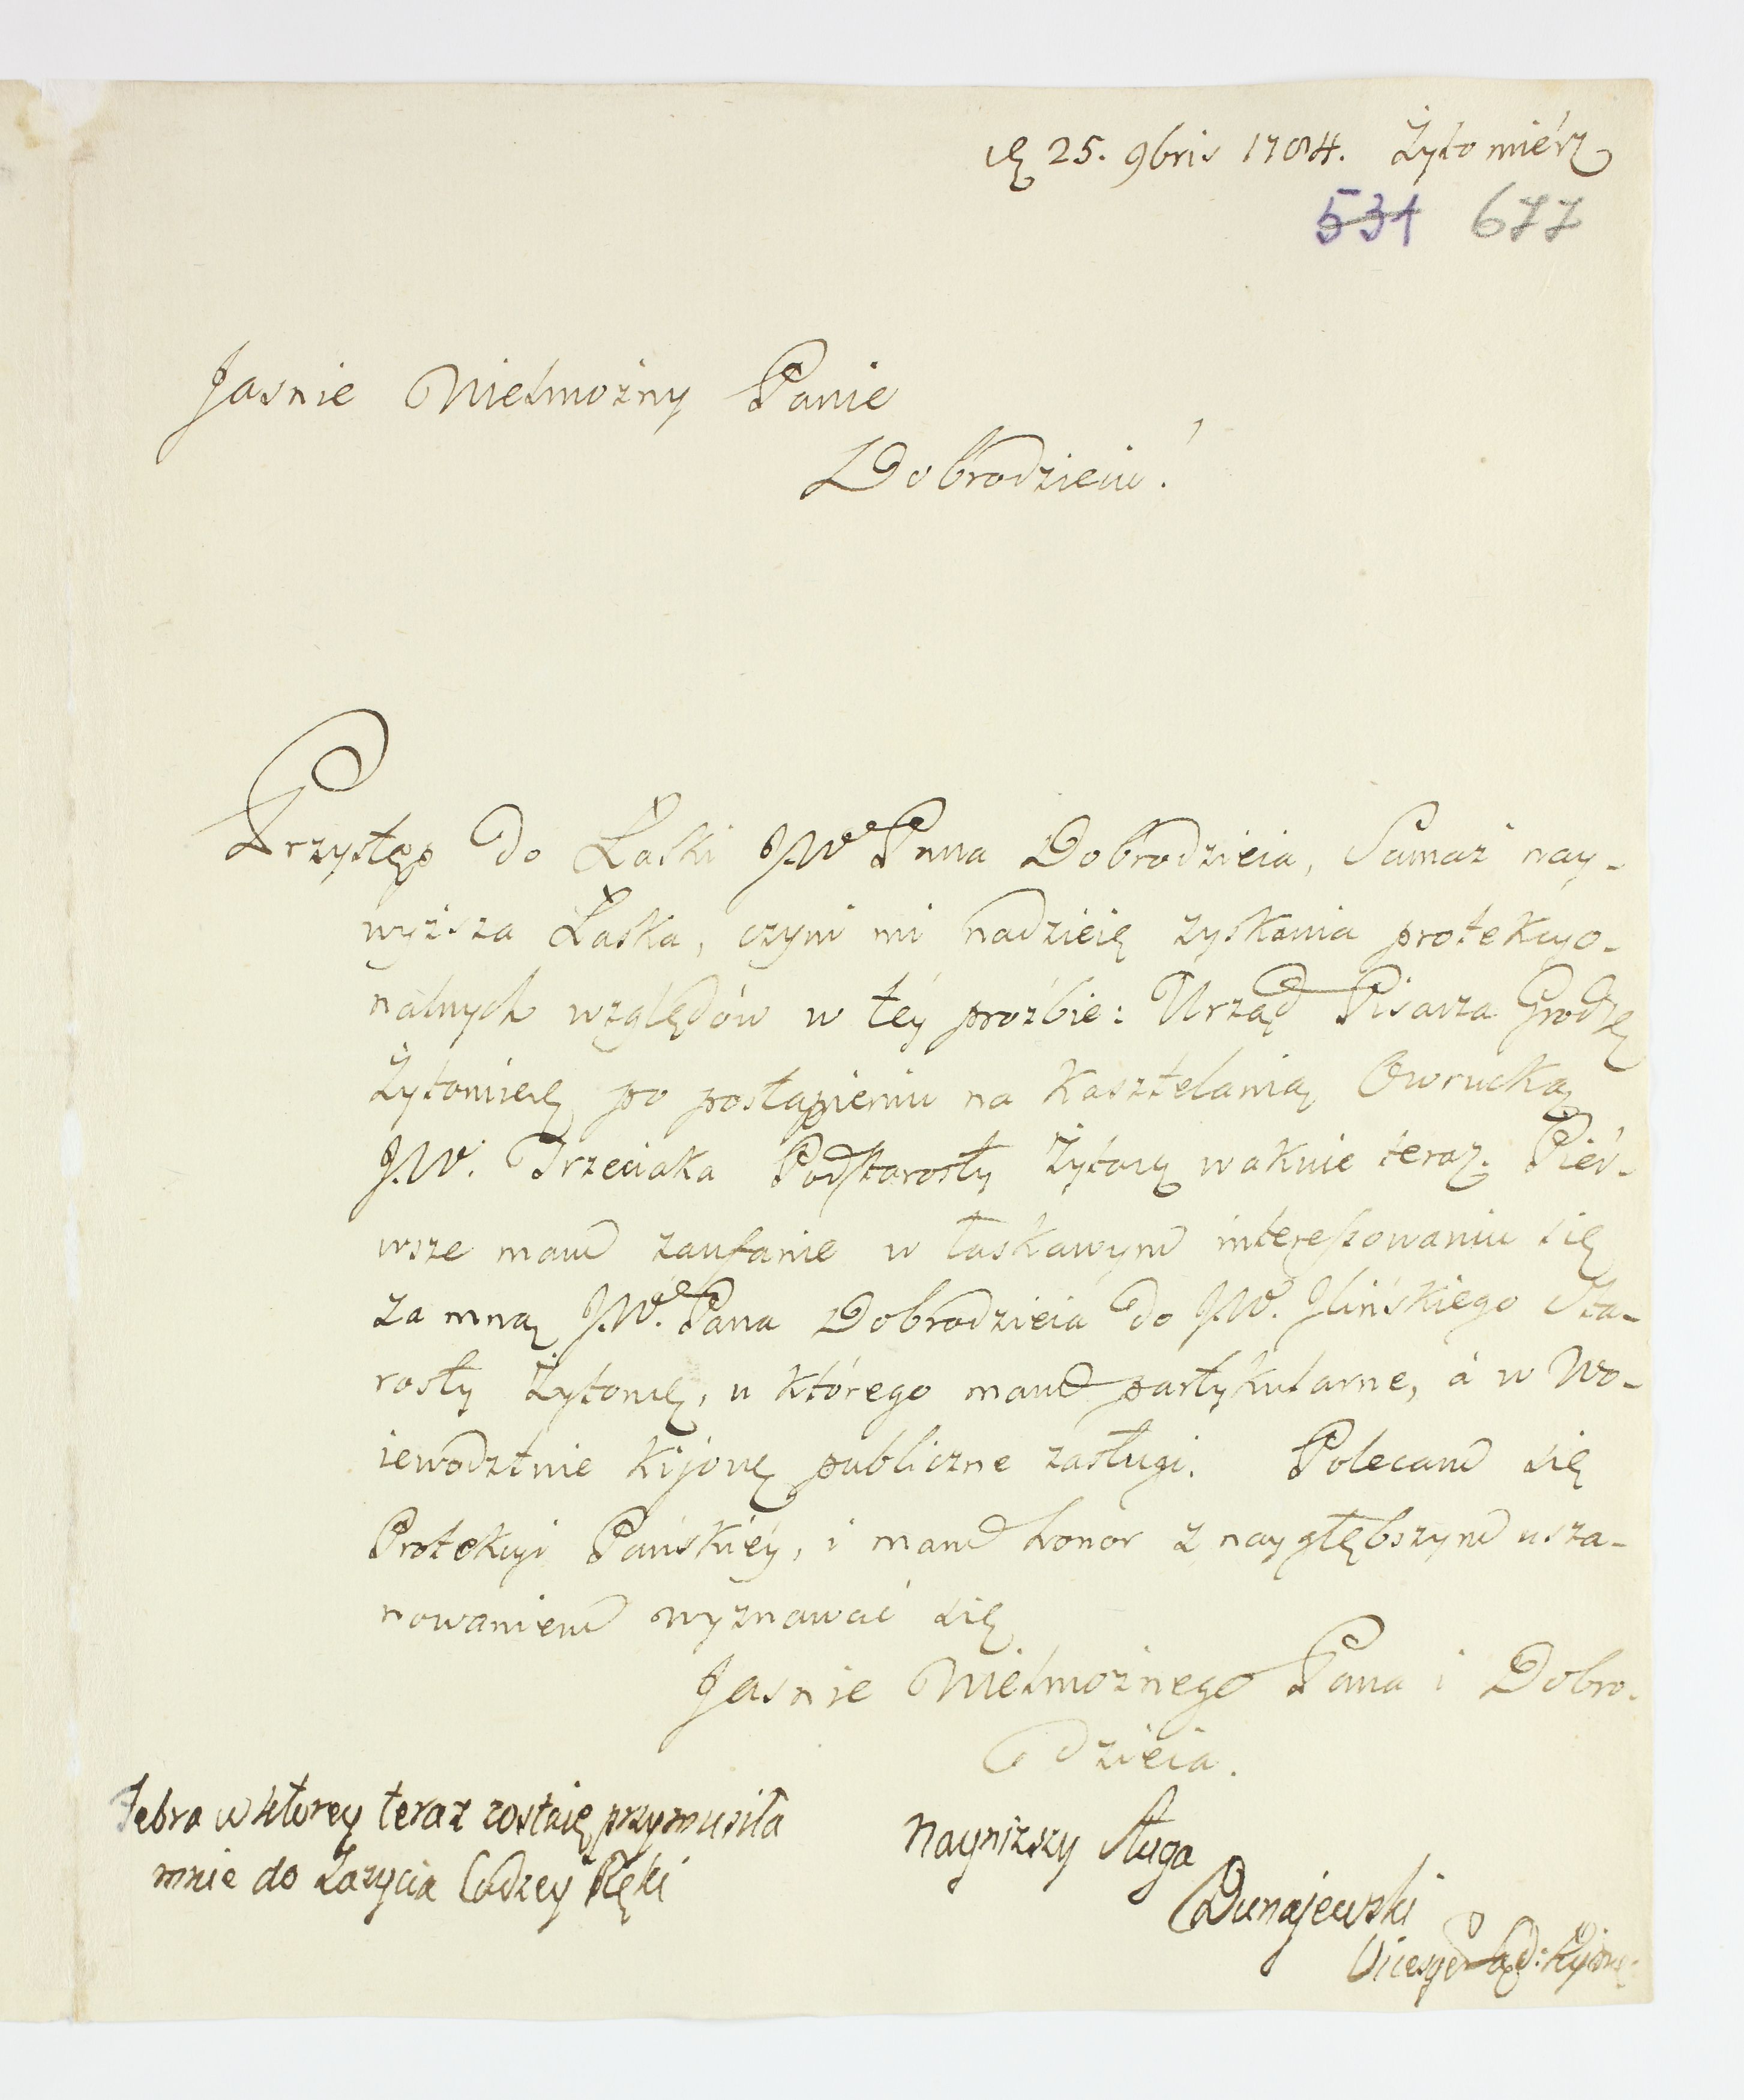 25. 9bris 1784. Żytomiérz
531 677
Jasnie Wielmożny Panie
Dobrodzieiu!
Przystęp do Łaski JWo Pana Dobrodzieia, Samaż nay-
wyższa Łaska, czyni mi nadzieię zyskania protekcyo-
nalnych względów w téy proźbie: Urząd Pisarza Grodzę
Żytomirę po postąpieniu na Kasztelanią Owrucką
J.W. Trzeciaka Podstarosty Żytorę wakuie teraz. Piér-
wsze mam zaufanie w łaskawym interessowaniu się
za mną J.W. Pana Dobrodzieia do J.W. Ilińskiego Sta-
rosty Żytomię, u którego mam partykularne, á w Wo-
iewodztwie Kijowę publiczne zasługi. Polecam się
Protekcyi Pańskiéy, i mam honor z naygłębszym usza-
nowaniem wyznawać się
Jasnie Wielmożnego Pana i Dobro-
dzieia.
Febra w ktorey teraz zostaię przymusiła
mnie do Zażycia Cudzey Ręki
Nayniższy Sługa
Dunajewski